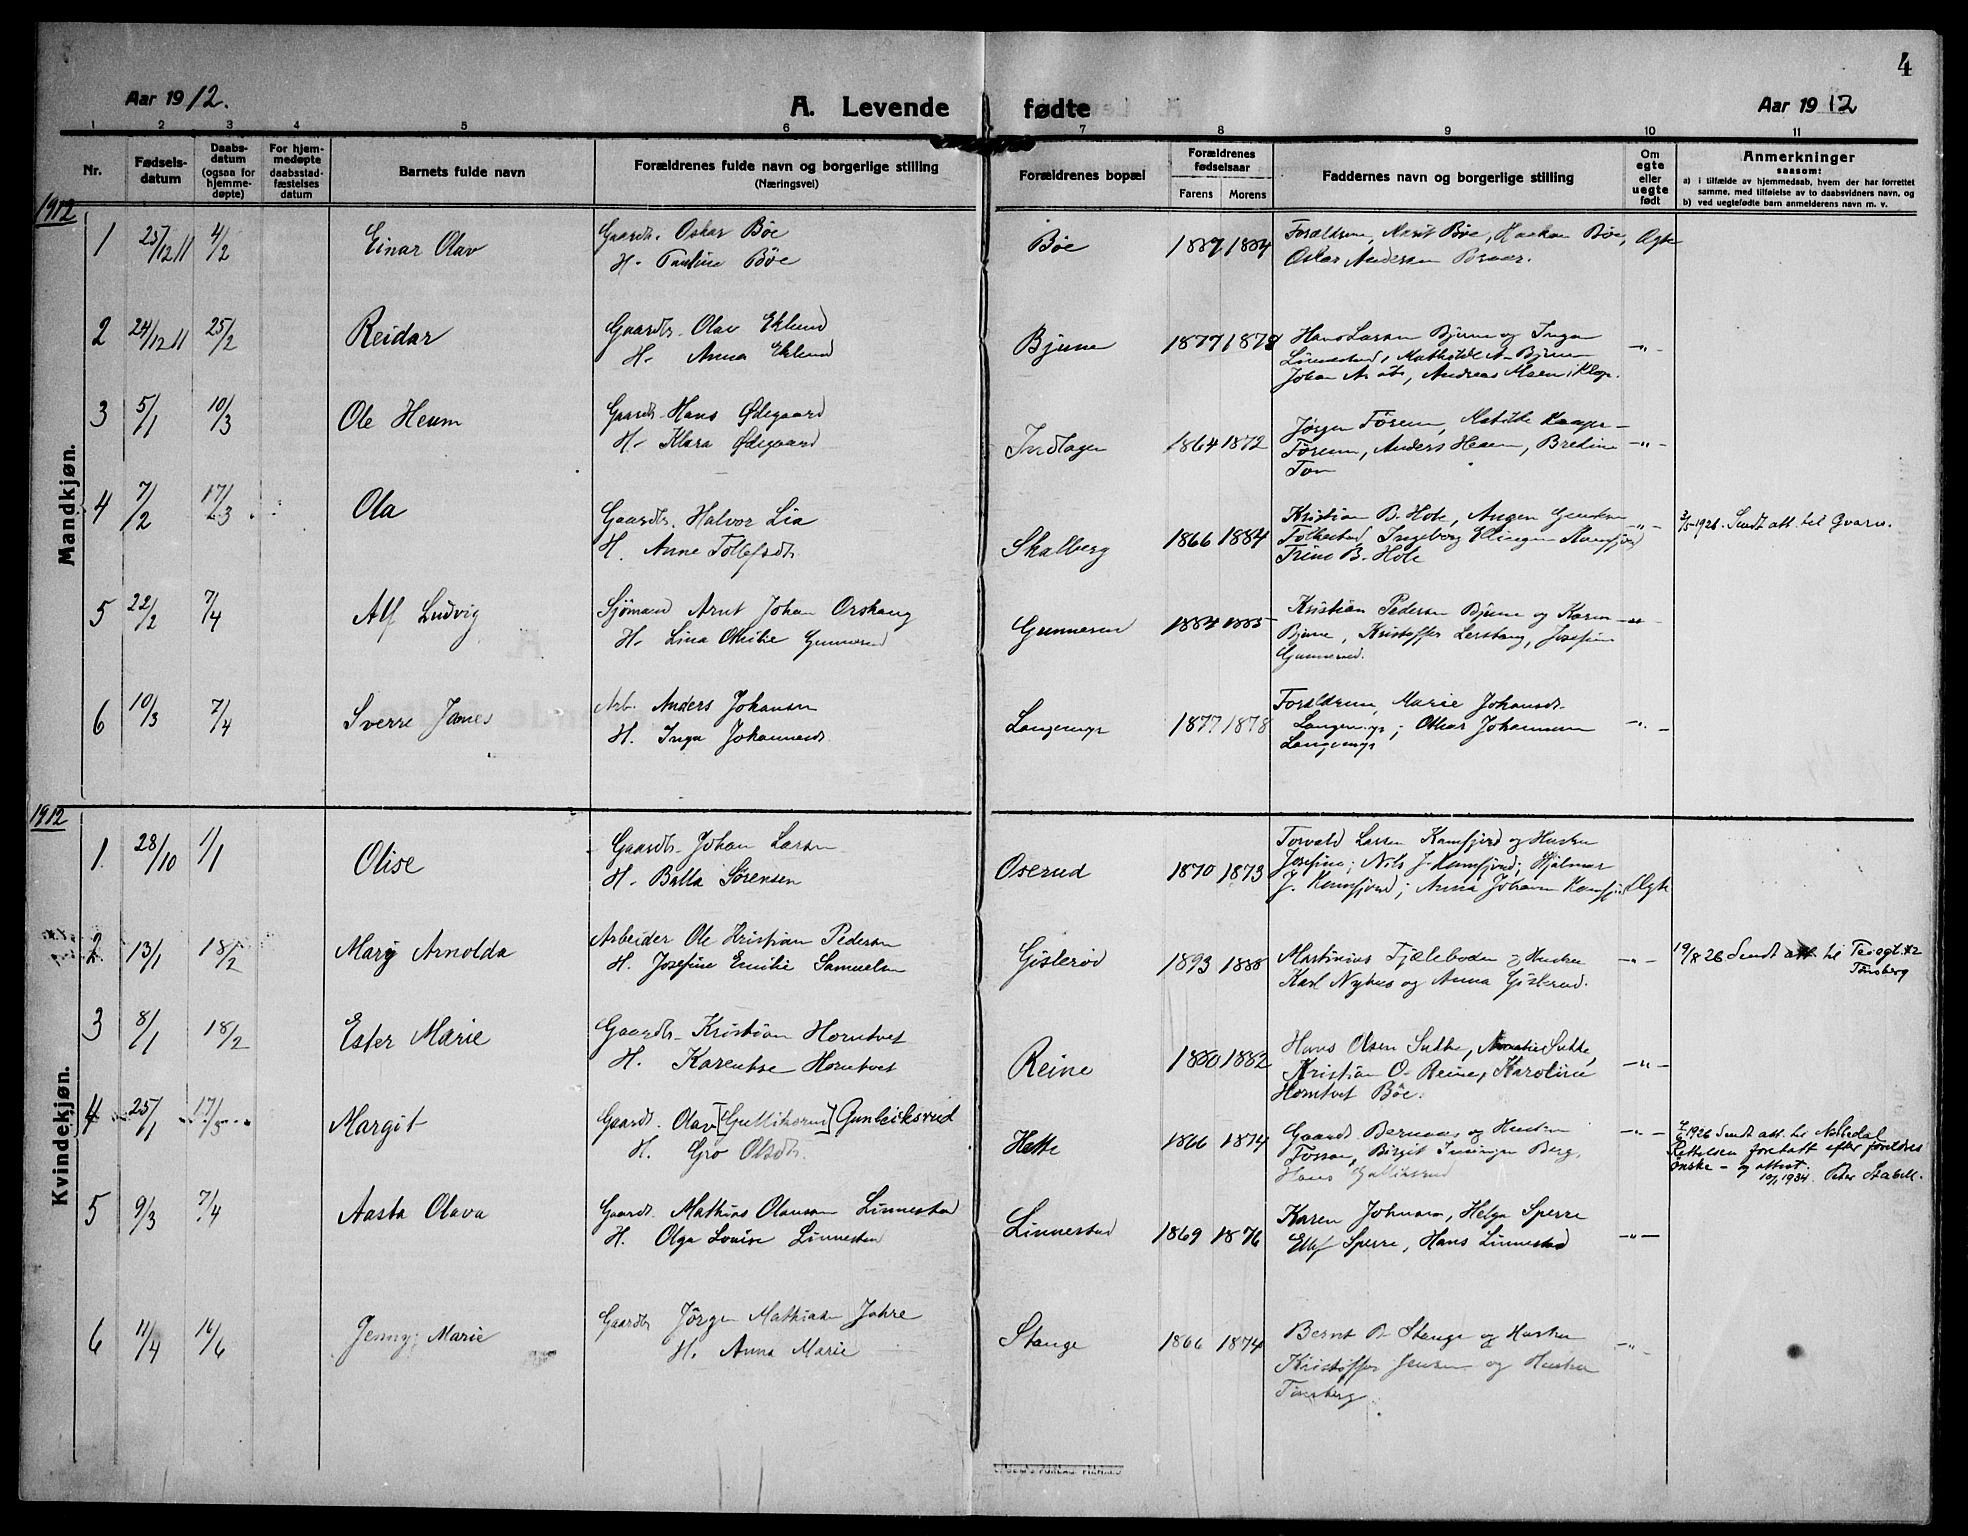 4
Aar 1912.
A. Levende fødte
Aar 1912
1 2 3 4 5 6 7 8 9 10 11
Nr.
Fødsels-
datum
Daabs-
datum
(ogsaa for
hjemme-
døpte)
For hjem-
medøpte
daabsstad-
fæstelses
datum
Barnets fulde navn
Forældrenes fulde navn og borgerlige stilling
(Næringsvei)
Forældrenes bopæl
Forældrenes
fødselsaar
Farens Morens
Faddernes navn og borgerlige stilling
Om
egte
eller
uegte
født
Anmerkninger
saasom:
a) i tilfælde av hjemmedaab, hvem der har forrettet
samme, med tilføielse av to daabsvidners navn, og
b) ved uegtefødte barn anmelderens navn m. v.
1912
Mandkjøn.
1 25/12 11 4/2 Einar Olav Gaardb. Oskar Bøe Bøe 1884 Forældrene, Marit Bøe, Haakon Bøe, Egte
H. Pauline Bøe Oskar Andersen
2 24/12 11 25/2 Reidar Gaardb. Olav Eklund Bjune 1877 1878 Hans Larsen Bjune og Inga
H. Anna Eklund Linnestad, Mathilde A. Bjune
Johan A. Andreas Moen i
3 5/1 10/3 Ole Heum Gaardb. Hans Ødegaard Indlagen 1864 1872 Jørgen Føreun, Matilde
H. Klara Ødegaard Føreun, Anders Heum, Bredine
Ton
4 7/2 17/3 Ola Gaardb. Halvor Lia Skalberg 1866 1884 Kristian B. Hole, Aagen
H. Anne Tollefsdt. Folkestad, Ingeborg Ellingsen Kamfjord
Trine B. Hole
1926. Sendt att. til Gvarv.
5 22/2 7/4 Alf Ludvig Sjømand Arnt Johan Orskaug Gunnerød 1884 1885 Kristian Pedersen Bjune og Karen
H. Lina Otilie Gunnerød Bjune, Kristoffer Lerskaug, Josefine
Gunnerød.
6 10/3 7/4 Sverre James Arb. Anders Johansen Langemyr 1877 1878 Forældrene, Marie Johansdt.
H. Inga Johannesdt. Langemyr; Oskar Johannesen
Langemyr
1912
Kvindekjøn.
1 28/10 1/1 Olise Gaardb. Johan Larsen Oserud 1870 1873 Torvald Larsen Kamfjord og Hustru
H. Balla Sørensen Josefine; Nils J. Kamfjord; Hjalmar
J. Kamfjord; Anna Johanne Egte
2 13/1 18/2 Mary Arnolda Arbeider Ole Kristian Pedersen Gislerød 1893 1888 Martinius Fjæleboden og Hustru
H. Josefine Emilie Samuelsen Karl Nyhus og Anna Gislerud.
19/8 26 Sendt att. til
Tønsberg
3 8/1 18/2 Ester Marie Gaardb. Kristian Horntvet Reine 1880 1882 Hans Olsen Sukke, Sukke,
H. Karentse Horntvet Kristian O. Reine, Karoline
Horntvet Bøe.
4 25/1 17/3 Margit Gaardb. Olav [Gullikserud] Gunleiksrud Hette 1866 1874 Gaardb. Bernaas og Hustru
H. Gro Olsdt. Fossan, Birgit Berg,
Hans Gulliksrud
1926 Sendt att. til
Rettelsen foretatt efter foreldres
ønske - og attest.
1934. Peter Stabell.
5 9/3 7/4 Aasta Olava Gaardb. Mathias Olausen Linnestad Linnestad 1869 1876 Karen Johnsen, Helga Sperre
H. Olga Lovise Linnestad Ellef Sperre, Hans Linnestad
6 11/4 16/6 Jenny Marie Gaardb. Jørgen Mathisen Jahre Stange 1866 1874 Bernt B. Stange og Hustru
H. Anna Marie Kristoffer Jensen og Hustru
Tønsberg